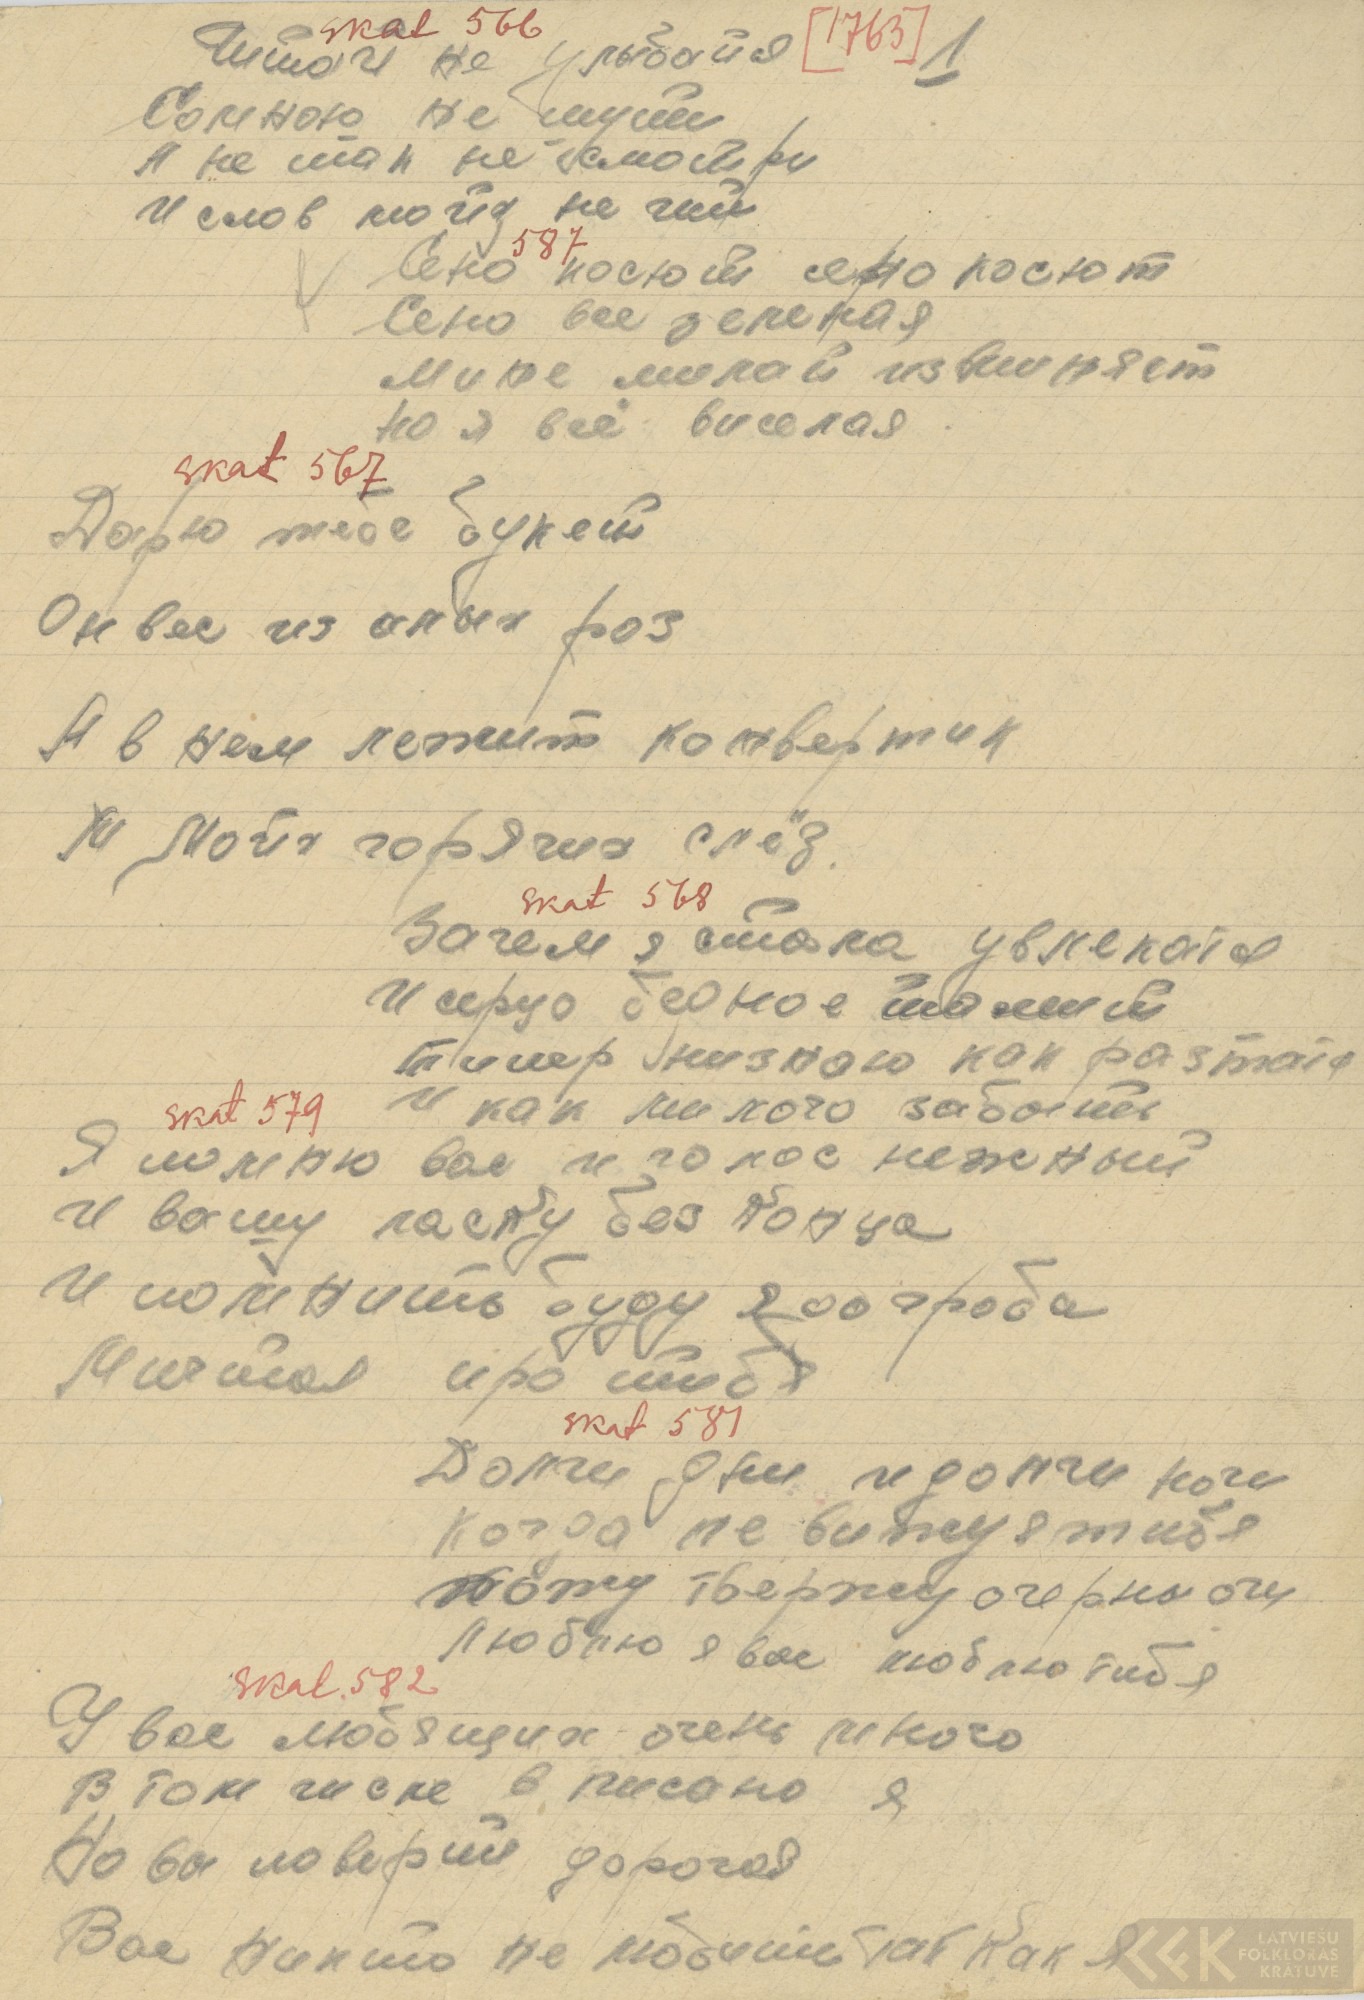 skat 566 [1763] 1
Читай не улыбайя
Сомною не шути
А не так не смотри
И слов мойх не
587
Сено косют сено косют
Сено все зеленая
Мине милай извиняет
Но я всё виселая
skat 567
Дарю тебе букет
Он вес из алых роз
А в нем лежит конвертик
Мойх горячих слёз.
skat 568
Зачем я стала увлекатя
И серцо бедное томит
типер низнаю как разтатя
И как милого забыть
skat 579
Я помню вас и голос нежный
И вашу ласку без конца
И помнить буду я до гроба
Мичтая про тибя
skat 581
Долги дни и долги ночи
Когда не вижу я тибя
твержу очерны очи
Люблю я вас люблю тибя
skat. 582
У вас любящих очень много
В том числе в писано я
Но ви поверти дорогая
Вас никто не любить так как я
LATVIEŠU
FOLKLORAS
KRĀTUVE